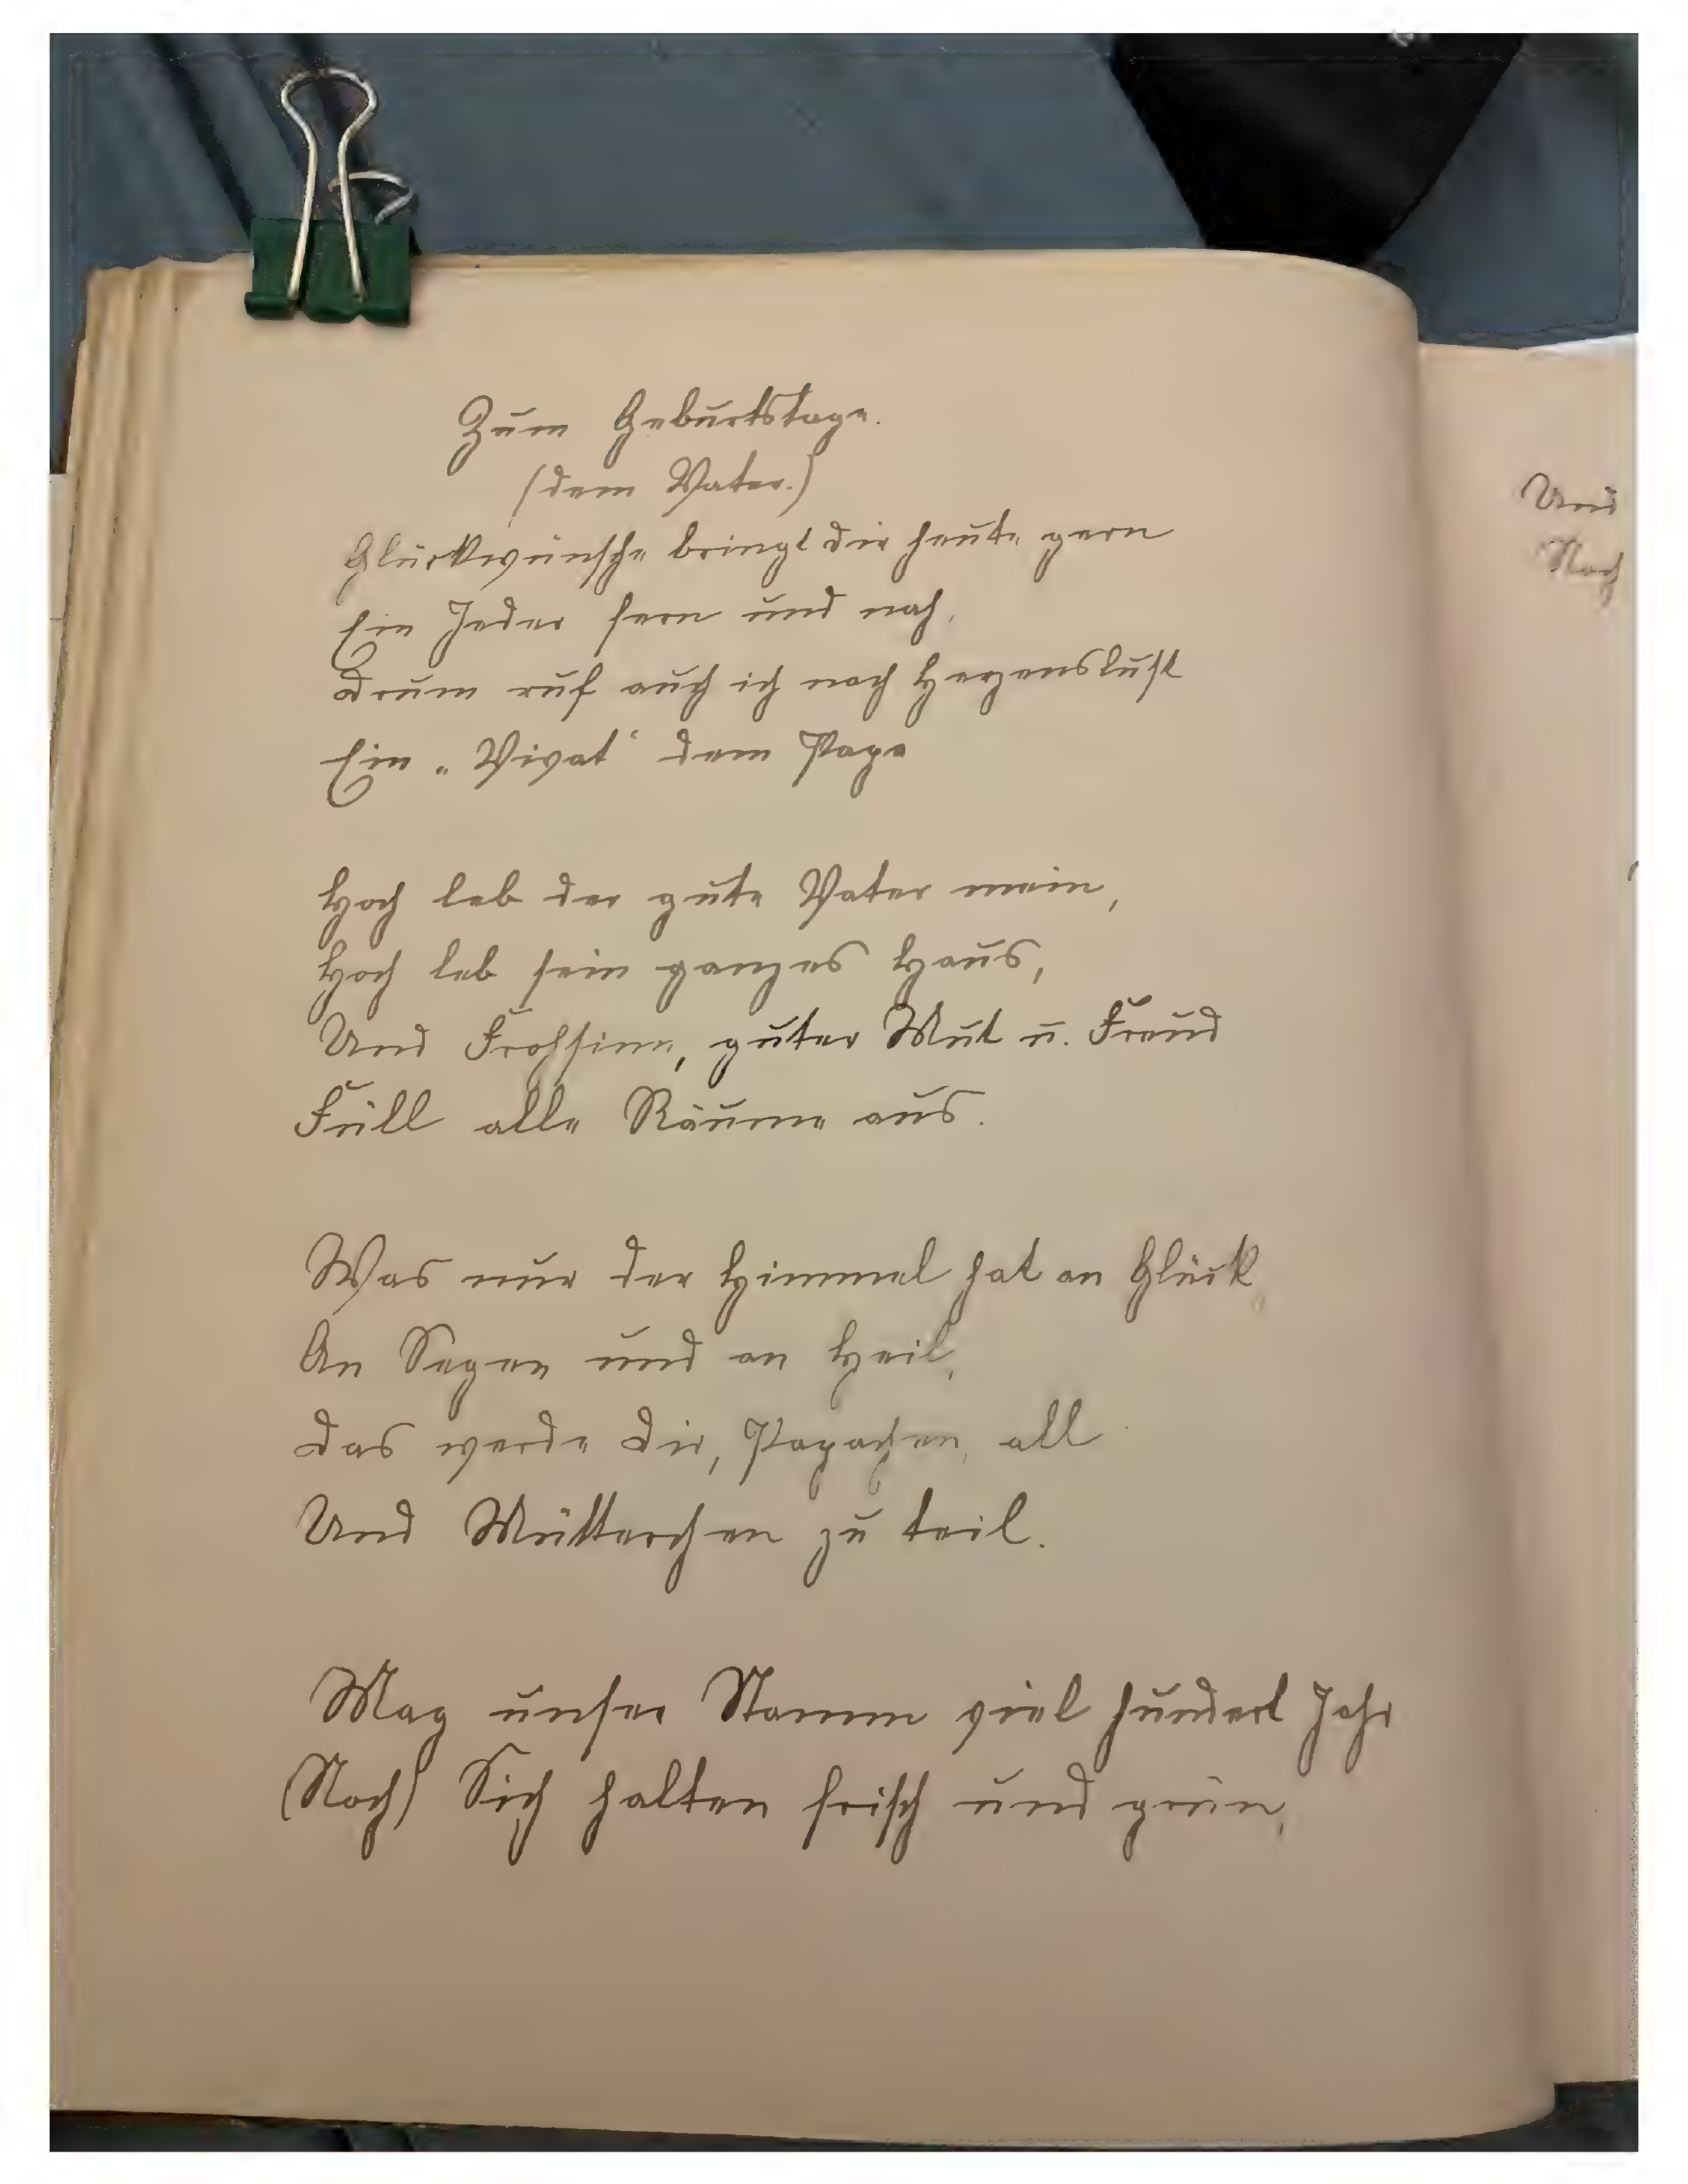 Zum Geburtstage.
(dem Vater.)
Glückwünsche bringt dir heute gern
Ein Jeder fern und nah,
Drum ruf auch ich nach Herzenslust
Ein „Vivat“ dem Papa
Hoch leb der gute Vater mein,
Hoch leb sein ganzes Haus,
Und Frohsinn, guter Mut u. Freud
Füll alle Räume aus.
Was nur der Himmel hat an Glück,
An Segen und an Heil,
Das werde Dir, Papachen, all
Und Mütterchen zu teil.
Mag unser Stamm viel hundert Jahr
(Noch) Sich halten frisch und grün,
Und
Noch